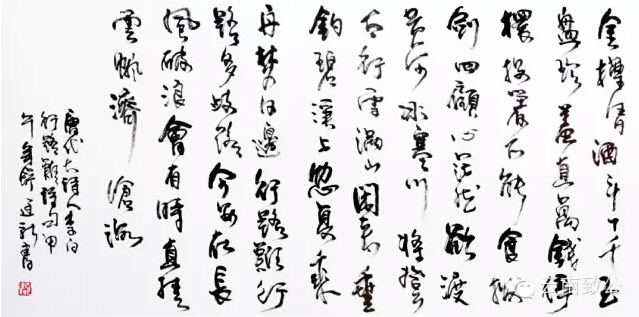 金樽清酒斗十千玉
盤珍羞直萬錢停
杯投箸不能食拔
劍四顧心茫然欲渡
黃河冰塞川將登
太行雪滿山閑來垂
釣碧溪上忽復乘
舟夢日邊行路難行
路多歧路今安在長
風破浪會有時直挂
雲帆濟滄海
唐代大詩人李白
行路難詩句甲
午年 新書
云南致公